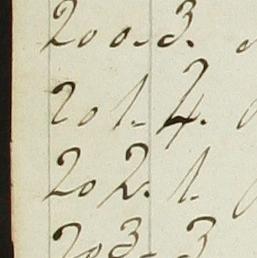 200. 3.
201. 4.
202. 1.
203. 3